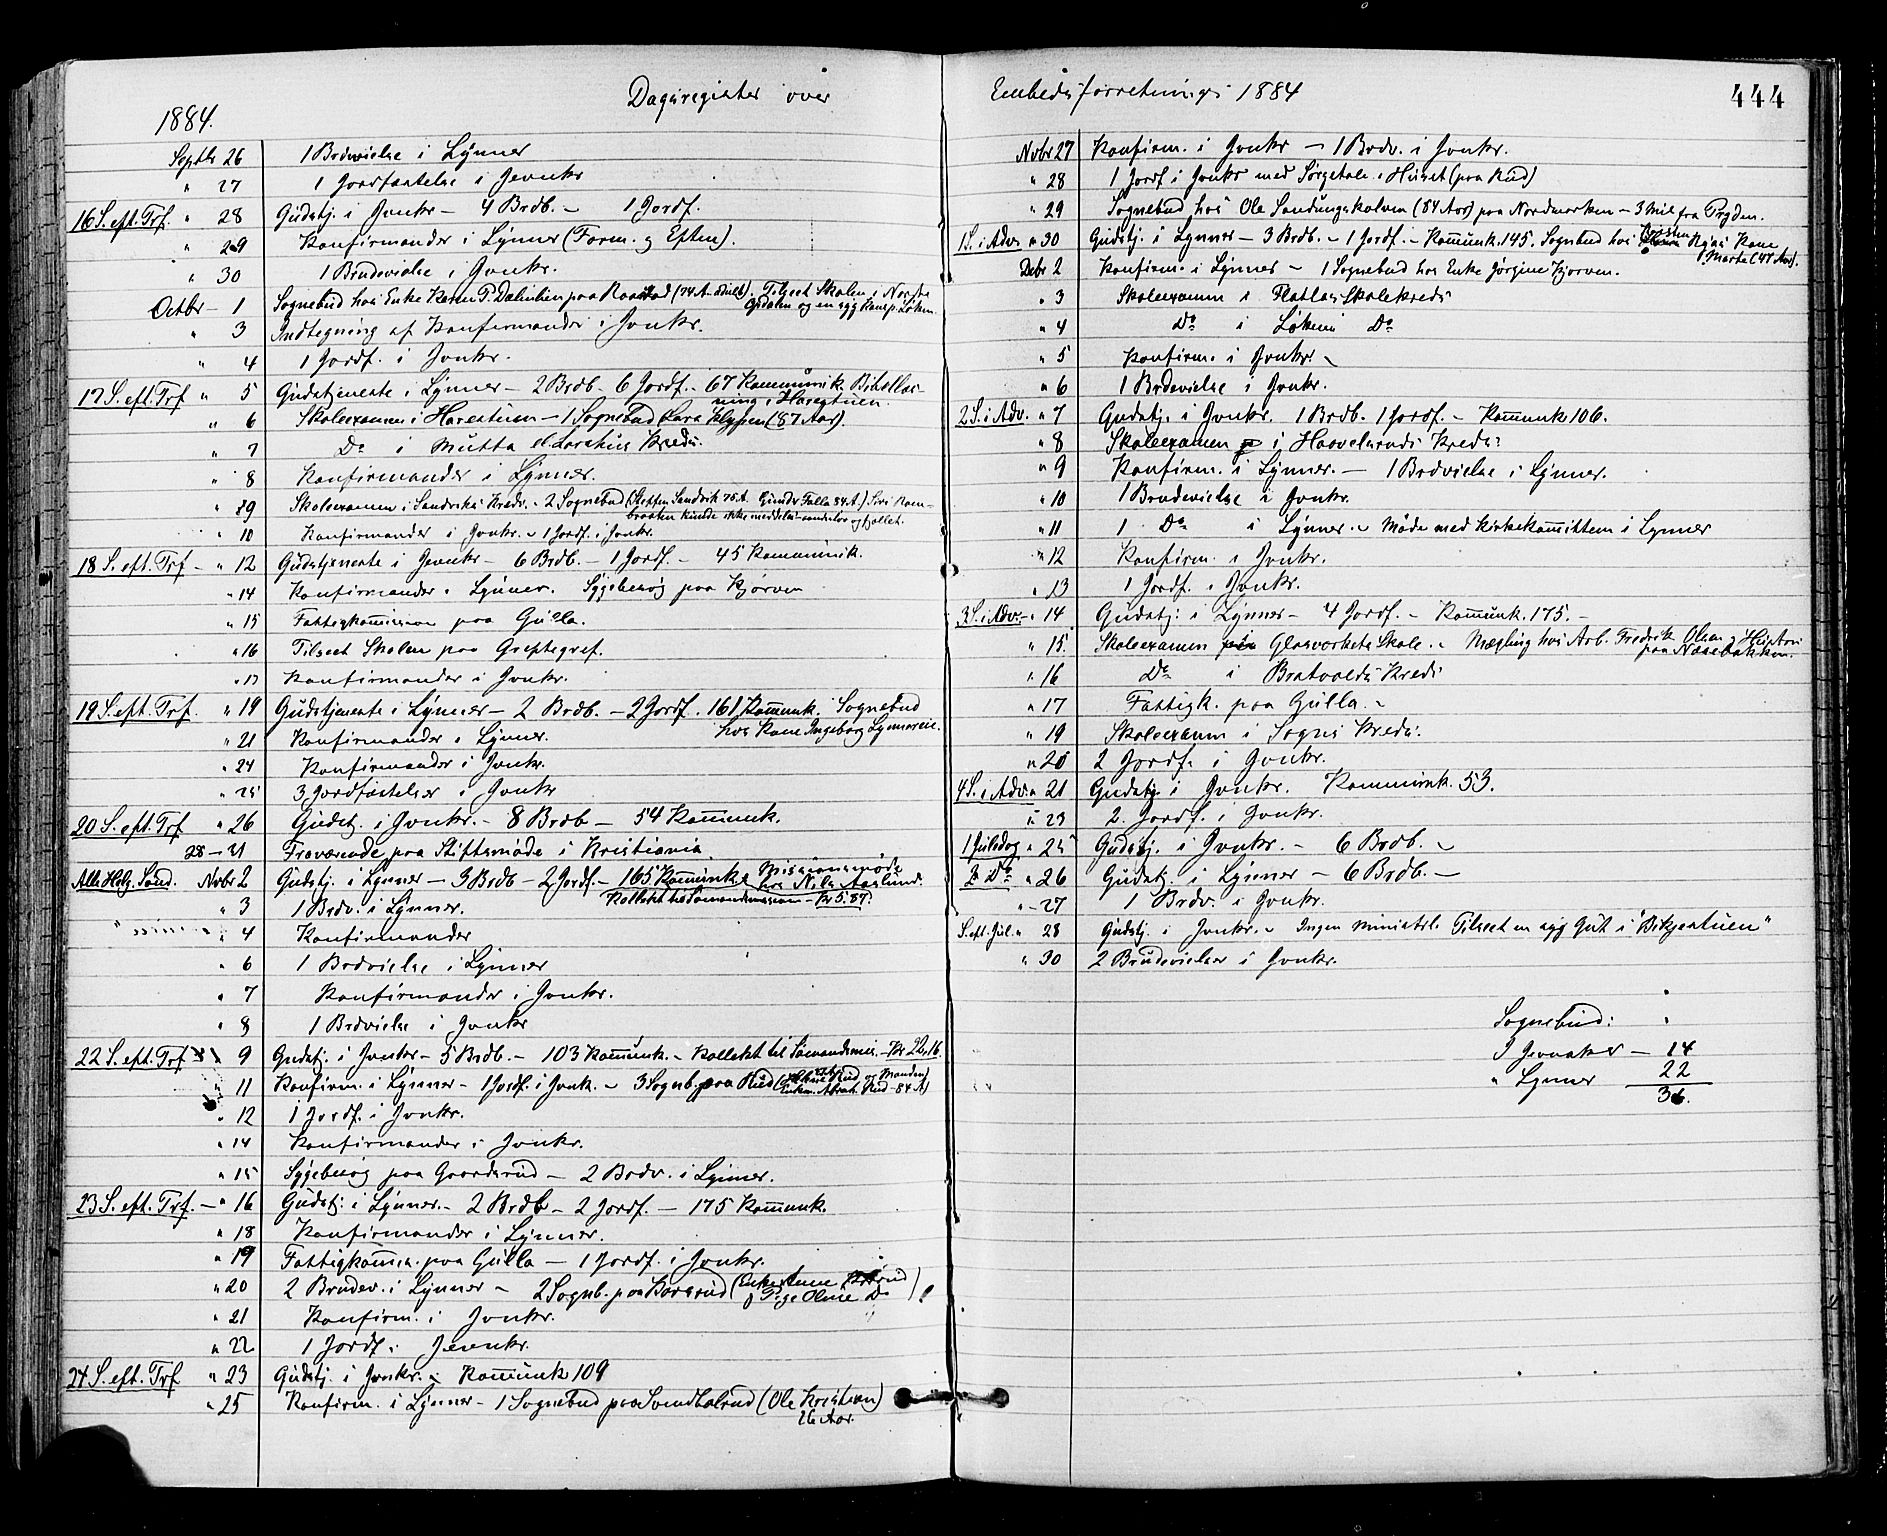 Dagsregister over
1884.
Septbr 26 1 Brdevielse i Lynner
" 27 1 Jordfæstelse i Jevnkr
16 S. eft. Trf. " 28 Gudstj. i Jvnkr - 4 Brdb. - 1 Jordf.
" 29 Konfirmander i Lynner (Form. og Efterm).
" 30 1 Brudevielse i Jvnkr.
Octbr - 1 Sognebud hos Enke Karen P. Dæhnlien paa (74 A. ). Tilseet Skolen i Nordre
Opdalen og en syg Kone p. Løken.
" 3 Indtegning af Konfirmander i Jvnkr.
" 4 1 Jordf. i Jvnkr.
17 S. eft. Trf " 5 Gudstjeneste i Lynner - 2 Brdb - 6 Jordf. - 67 Kommunik. Bibellæs-
ning i Harestuen.
" 6 Skoleexamen i Harestuen - 1 Sognebud Lars Klypen (87 Aar).
" 7 Do i Mutta Kreds.
" 8 Konfirmander i Lynner.
" 9 Skoleexamen i Sandviks Kreds. - 2 Sognebud (Steffen Sandvik 75 A. Gunder Falla 84 A.) Siri Ram-
braaten kunde ikke meddeles og fjollet.
" 10 Konfirmander i Jvnkr. - 1 Jordf. i Jvnkr.
18 S. eft. Trf - " 12 Gudstjeneste i Jevnkr - 6 Brdb. - 1 Jordf. - 45 Kommunik.
" 14 Konfirmander i Lynner. Sygebesøg paa Kjørven
" 15 Fattigkommission paa Gulla.
" 16 Tilseet Skolen paa Greftegref.
" 17 Konfirmander i Jvnkr.
19 S. eft. Trf. " 19 Gudstjeneste i Lynner - 2 Brdb. - 2 Jordf. 161 Kommunk. Sognebud
hos Kone Ingeborg Lynnereie.
" 21 Konfirmander i Lynner.
" 24 Konfirmander i Jvnkr.
" 25 3 Jordfæstelser i Jvnkr
20 S. eft. Trf " 26 Gudstj. i Jvnkr. - 8 Brdb - 54 Kommunk.
28 - 31 Fraværende paa Stiftsmøde i Kristiania.
Alle Helg. Sønd. Novbr 2 Gudstj. i Lynner - 3 Brdb - 2 Jordf. - 165 Kommunk. Missionsmøde
hos Nils Aaslund.
Kollekt til Sømandsmission - Kr 5.87.
" 3 1 Brdv. i Lynner.
" 4 Konfirmander
" 6 1 Brdvielse i Lynner
" 7 Konfirmander i Jvnkr.
" 8 1 Brdvielse i Jvnkr
22 S. eft. Trf " 9 Gudstj. i Jvnkr - 5 Brdb. - 103 Kommunk. - Kollekt til Sømandsmis. - Kr 22,16.
" 11 Konfirm. i Lynner - 1 Jordf. i Jvnk. - 3 Sognb. paa Rud ( Rud og Manden)
Enkem. Abrah. Rud - 84 A)
" 12 1 Jordf. i Jvnkr.
" 14 Konfirmander i Jvnkr.
" 15 Sygebesøg paa Gaardsrud - 2 Brdv. i Lynner.
23 S. eft. Trf. - " 16 Gudstj. i Lynner. - 2 Brdb - 2 Jordf. - 175 Kommunk.
" 18 Konfirmander i Lynner.
" 19 Fattigkomm. paa Gulla - 1 Jordf. i Jvnkr.
" 20 2 Brudev. i Lynner - 2 Sognb. paa Korsrud (Enke Anne Korsrud
og Pige Oline Do)
" 21 Konfirm. i Jvnkr.
" 22 1 Jordf. i Jevnkr.
24 S. eft. Trf " 23 Gudstj. i Jvnkr. - Kommunk 109
" 25 Konfirm. i Lynner - 1 Sognebud paa Svendbalrud (Ole Kristian)
26 Aar.
Embedsforretninger 1884
444
Novbr 27 Konfirm. i Jvnkr - 1 Brdv. i Jvnkr.
" 28 1 Jordf. i Jvnkr med Sørgetale i Huset (paa Rud)
" 29 Sognebud hos Ole Sandungskalven (84 Aar) paa Nordmarken - 3 Mil fra Prgden.
1 S. i Adv. " 30 Gudstj. i Lynner - 3 Brdb. - 1 Jordf. - Kommunk. 145. Sognebud hos Kone
Marte (47 Aar).
Debr 2 Konfirm. i Lynner - 1 Sognebud hos Enke Jørgine Kjorven.
" 3 Skoleexamen i Flatlas Skolekreds
" 4 Do i Løkens Do
" 5 Konfirm. i Jvnkr. -
" 6 1 Brdevielse i Jvnkr.
2 S. i Adv. " 7 Gudstj. i Jvnkr. 1 Brdb. 1 Jordf. - Kommunk 106.
" 8 Skoleexamen i Haavelsruds Kreds.
" 9 Konfirm. i Lynner. - 1 Brdvielse i Lynner.
" 10 1 Brudevielse i Jvnkr.
" 11 1 Do i Lynner. - Møde med Kirkekommitteen i Lynner
" 12 Konfirm. i Jvnkr.
" 13 1 Jordf. i Jvnkr.
3 S. i Adv. - " 14 Gudstj. i Lynner - 4 Jordf. - Kommunk. 175. -
" 15. Skoleexamen Glasværkets Skole. - Mægling hos Arb. Fredrik Olsen og Hustru
paa Næsebakken.
" 16 Do i Bratvolds Kreds
" 17 Fattigk. paa Gulla. -
" 19 Skoleexamen i Sogns Kreds.
" 20 2 Jordf. i Jvnkr.
4 S. i Adv. " 21 Gudstj. i Jvnkr. Kommunk. 53.
" 23 2. Jordf. i Jvnkr.
1 Juledag " 25 Gudstj. i Jvnkr. - 6 Brdb. -
2 Do " 26 Gudstj. i Lynner - 6 Brdb. -
" - 27 1 Brdv. i Jvnkr.
S. eft. Jul. " 28 Gudstj. i Jvnkr. - Ingen Ministrl. Tilseet en syg Gut i "Bikjestuen"
" 30 2 Brudevielser i Jvnkr.
Sognebud:
I Jevnaker - 14
" Lynner - 22
36.